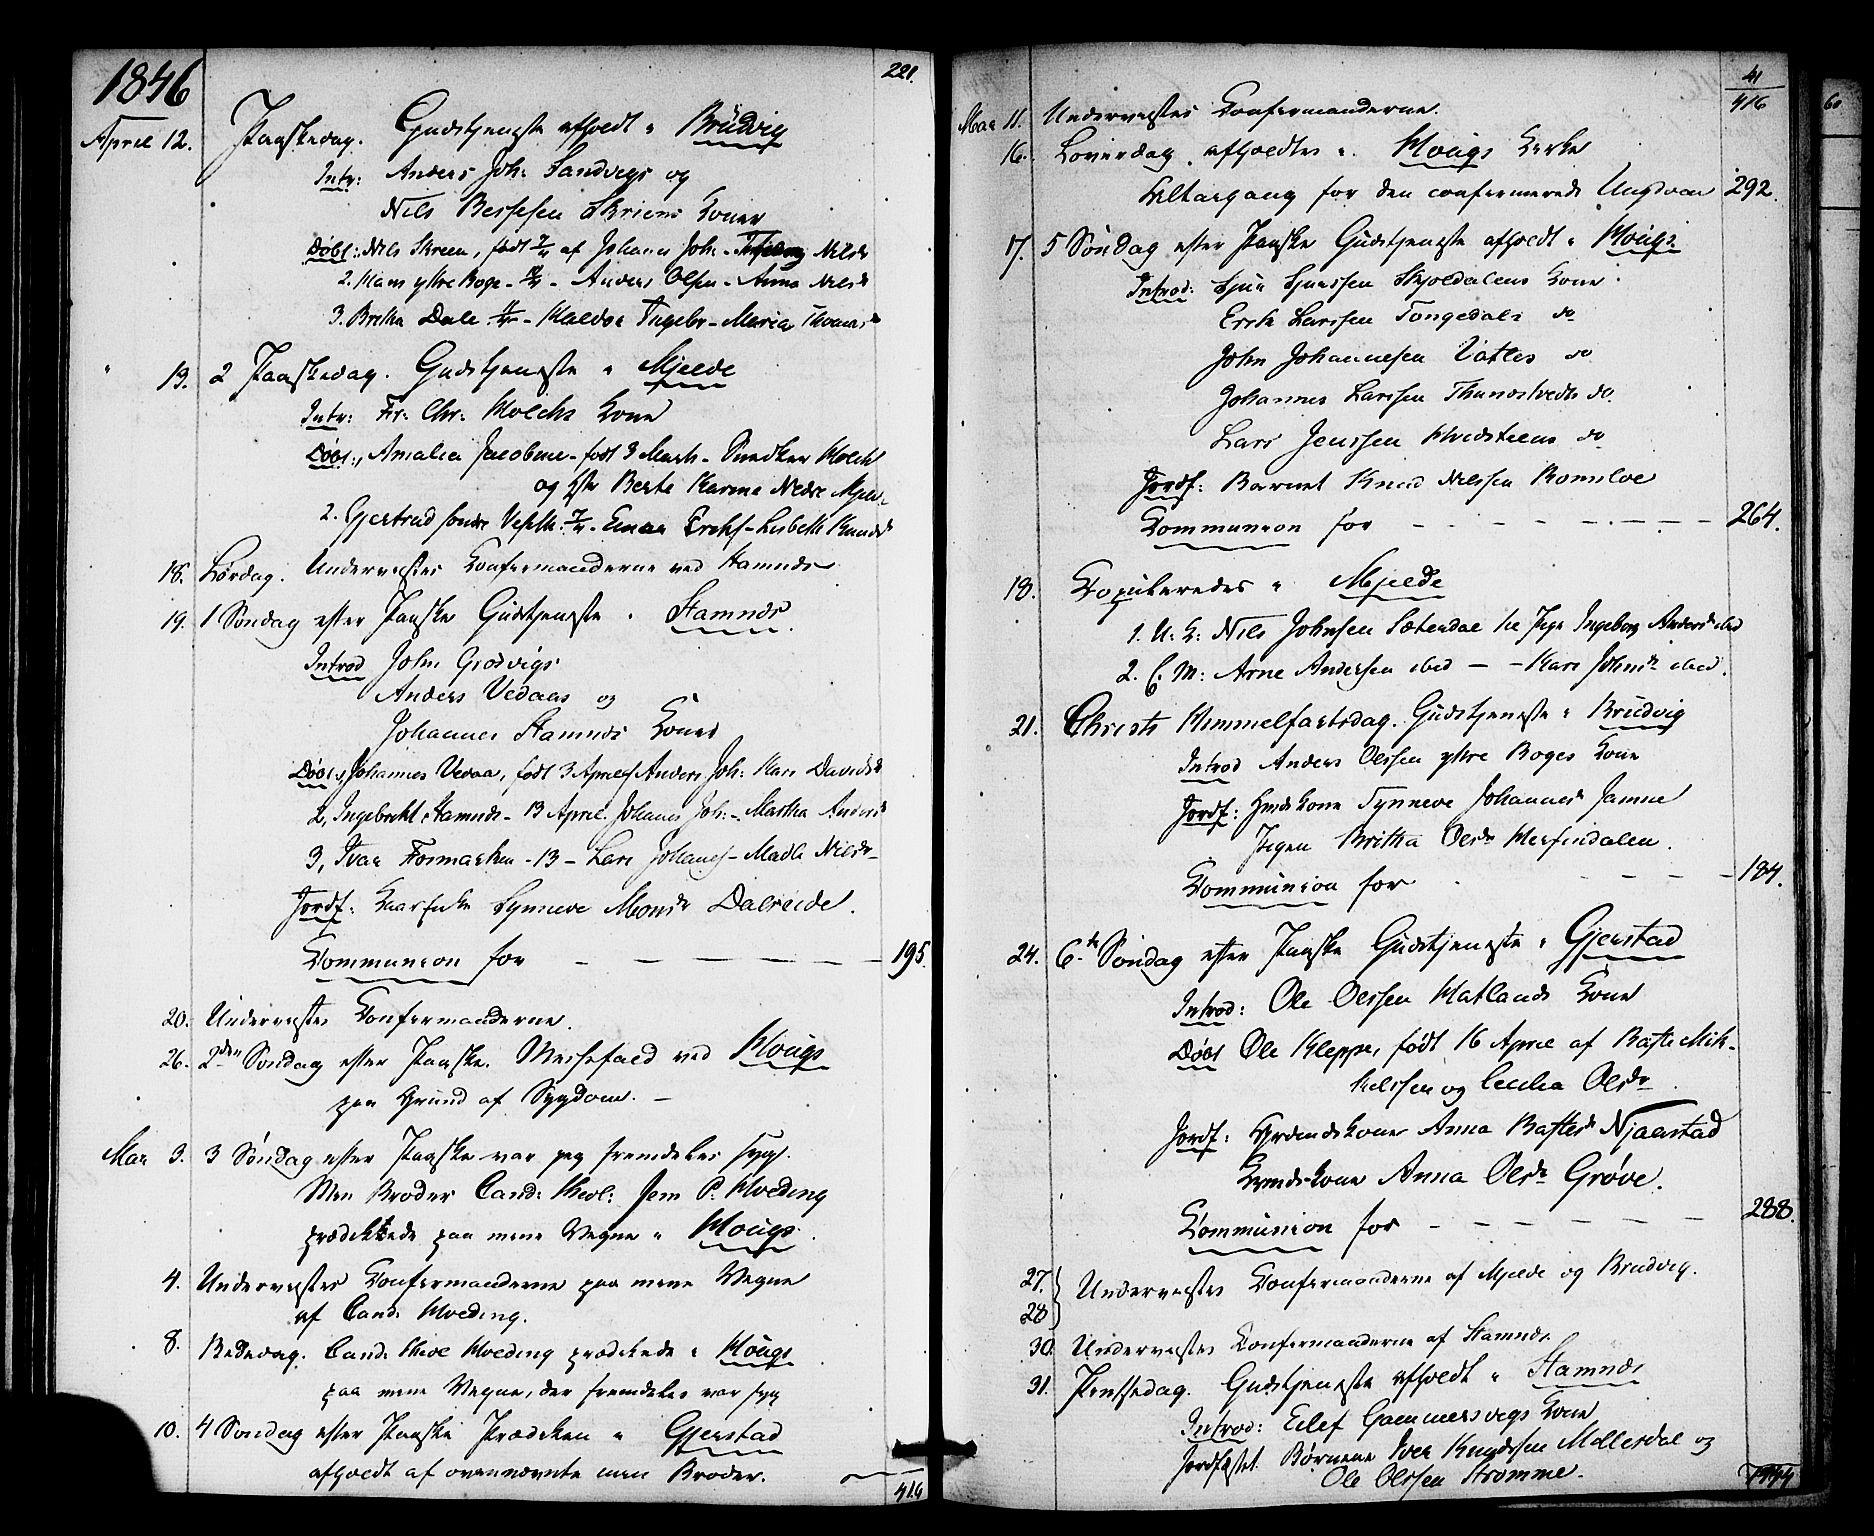 1846
221.
April 12. Paaskedag. Gudstjeneste afholdt i Brudvig
Intr: Anders Joh: Sandvigs og
Nils Skriens Koner
Døbt: Nils Skreen, født af Johans Joh - Nilsd
2. Hans ytre Boge - Anders Olsen - Anna Nilsd
3. Britha Dale - Haldor Ingebr - Maria Thomasd
" 13. 2 Paaskedag. Gudstjeneste i Mjelde
Intr: Fr: Chr: Holchs Kone
Døbt: Amalia Jacobine - født 3 Marts - Snedker Holch
og Berte Karina Nedre Mjelde
2. Gjertrud søndre - Einar Erichs - Lisbeth Knudsd
18. Lørdag. Underviistes Confirmanderne ved Stamnæs
19. 1 Søndag efter Paaske Gudstjeneste i Stamnæs.
Introd John Grodvigs
Anders Vedaas og
Johannes Stamnæs Koner
Døbt: Johannes Vedaa, født 3 April af Anders Joh: Kari Davidsd
2, Ingebrikt Stamnæs - 13 April. Johans Joh: - Martha Andersd
3, Ivar Fosmarken - 13 - Lars Johans - Madli Nilsd -
Jordf: Synneve Monsd Dalseide.
Communion for — — — — — 195.
20. Underviistes Confirmanderne.
26. 2den Søndag efter Paaske. Messefald ved Hougs
paa Grund af Sygdom. —
Mai 3. 3 Søndag efter Paaske var jeg fremdeles syg.
Min Broder Cand: theol: Jens P. Hveding
prædikede paa mine Vegne i Hougs.
4. Underviistes Confirmanderne paa mine Vegne
af Cand: Hveding.
8. Bededag. Cand: theol Hveding prædikede i Hougs
paa mine Vegne, der fremdeles var syg
10. 4 Søndag efter Paaske Prædiken i Gjerstad
afholdt af ovennævnte min Broder.
416
41
416
Mai 11. Underviistes Confirmanderne.
16. Løverdag afholdtes i Hougs Kirke
Altargang for den confirmerede Ungdom 292.
17. 5 Søndag efter Paaske Gudstjeneste afholdt i Hougs
Introd: Sjur Sjurssen Skjoldalens Kone
Erik Larssen Tongedals do
John Johannesen Vatles do
Johannes Larssen Thunestvedts do.
Lars Jenssen do
Jordf: Barnet Knud Nilssen Romsloe
Communion for — — — — — 264.
18. Copuleredes i Mjelde
1. U: K: Nils Johnsen Sæterdal til Pige Ingeborg Andersd ibid
2. E. M: Arne Andersen ibid — — Kari Johnsd ibid.
21. Christi Himmelfartsdag. Gudstjeneste i Brudvig
Introd Anders Olssen ytre Boges Kone
Jordf: Huuskone Synneve Johannesd Jamne
Pigen Britha Olsdr Herfindalen.
Communion for — — — — 184.
24. 6te Søndag efter Paaske Gudstjeneste i Gjerstad
Introd: Ole Olssen Hatlands Kone
Døbt Ole Kleppe, født 16 April af Botle Mik-
kelssen og Cecilia Olsdr.
Jordf: Anna Njaastad
Anna Olsdr Grøve.
Communion for — — — — — 288.
27. 28 } Underviistes Confirmanderne af Mjelde og Brudvig.
30. Underviistes Confirmanderne af Stamnæs
31. Pintsedag. Gudstjeneste afholdt i Stamnæs
Introd: Eilef Gammersvigs Kone
Jordfæstet Børnene Iver Knudssen Møllerdal og
Ole Olssen Strømme.
1444